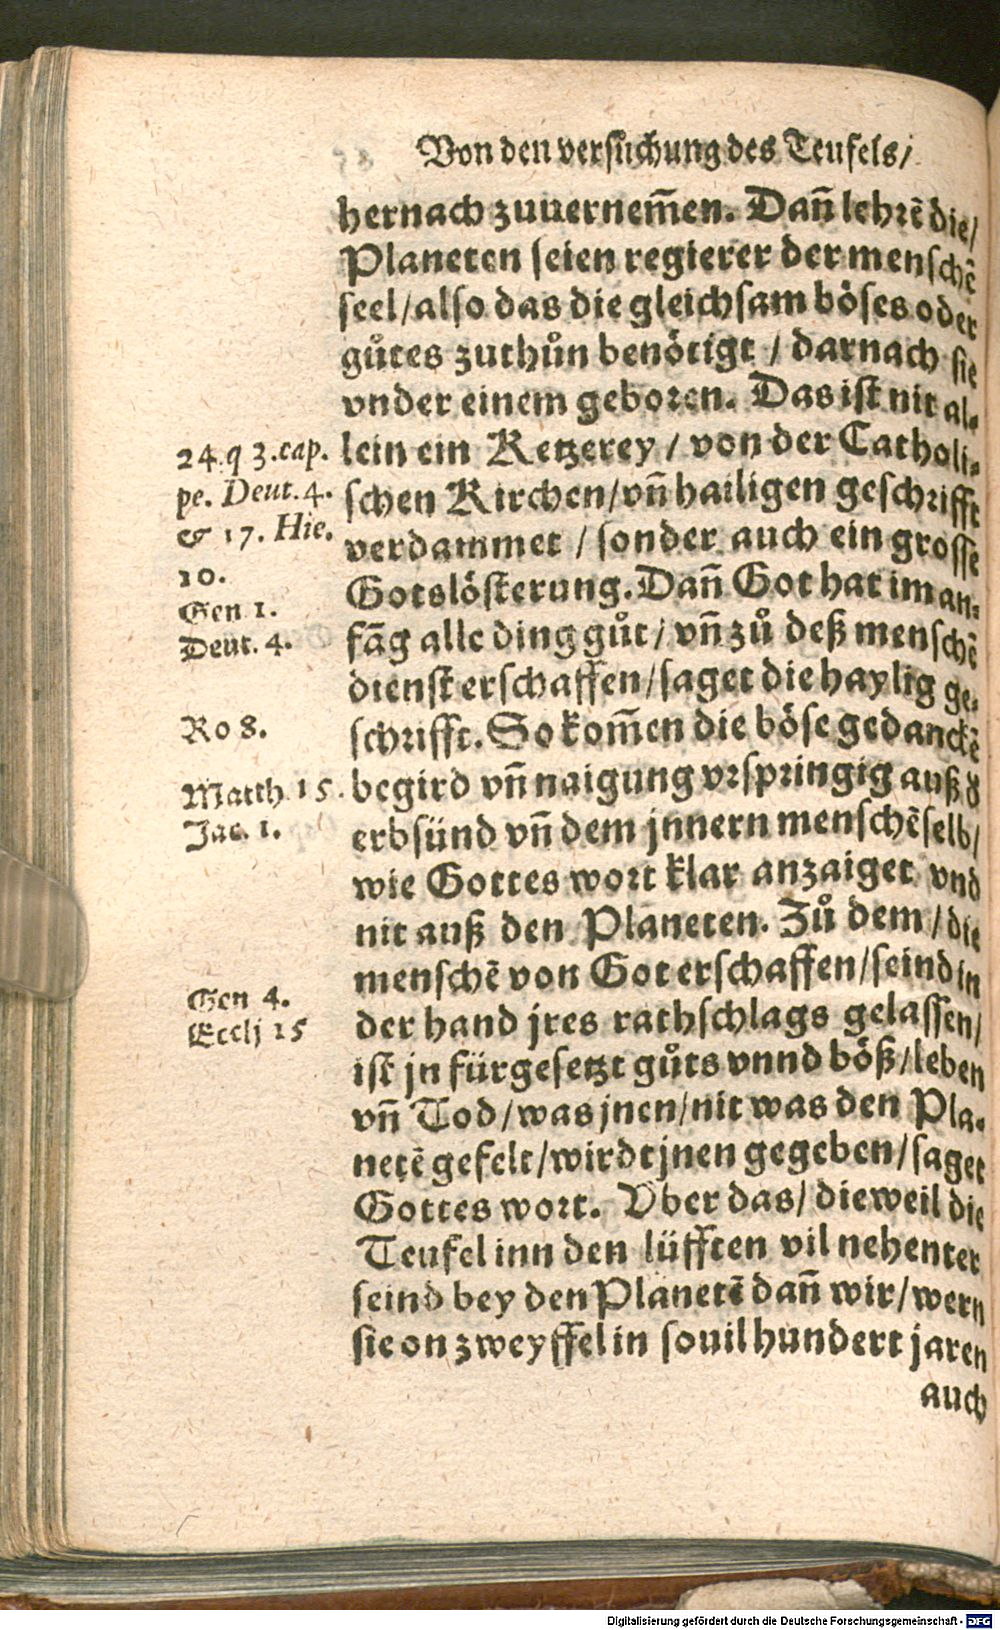 Von den versůchung des Teufels/
hernach zuuernem̃en. Dañ lehrẽ die/
Planeten seien regierer der menschẽ
seel/also das die gleichsam böses oder
gůtes zuthůn benötigt / darnach sie
vnder einem geboren. Das ist nit al-
24.q 3.cap.
pe. Deut.4.
& 17. Hie.
10.
Gen 1.
Deut. 4.
lein ein Ketzerey / von der Catholi-
schen Kirchen/vñ hailigen geschrifft
verdammet / sonder auch ein grosse
Gotslösterung. Dañ Got hat im an-
fãg alle ding gůt/ vñ zů deß menschẽ
dienst erschaffen/saget die haylig ge-
Ro 8.
schrifft. So kom̃en die böse gedanckẽ
Matth 15.
Jac. 1.
begird vñ naigung vrspringig auß d
erbsünd vñ dem jnnern menschẽ selb/
wie Gottes wort klar anzaiget vnd
nit auß den Planeten. Zů dem/die
menschẽ von Got erschaffen/seind in
Gen 4.
Eccli 15
der hand jres rathschlags gelassen/
ist jn fürgesetzt gůts vnnd böß/leben
vñ Tod/was jnen/nit was den Pla-
netẽ gefelt/wirdt jnen gegeben/saget
Gottes wort. Vber das/ dieweil die
Teufel inn den lüfften vil nehenter
seind bey den Planetẽ dañ wir/wern
sie on zweyffel in souil hundert jaren
auch
Digitalisierung gefördert durch die Deutsche Forschungsgemeinschaft - DFG